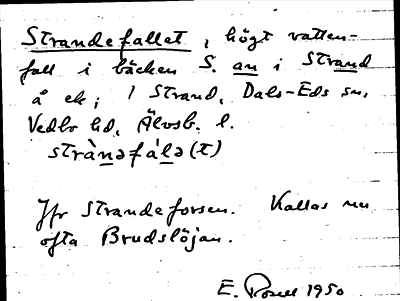 Strandefallet, högt vatten-
fall i bäcken S. an i Strand
å ek; i Strand, Dals-Eds sn,
Vedbo hd, Älvsb. l.
strànəfálə(t)
Jfr Strandeforsen. Kallas nu
ofta Brudslöjan.
E. 1950